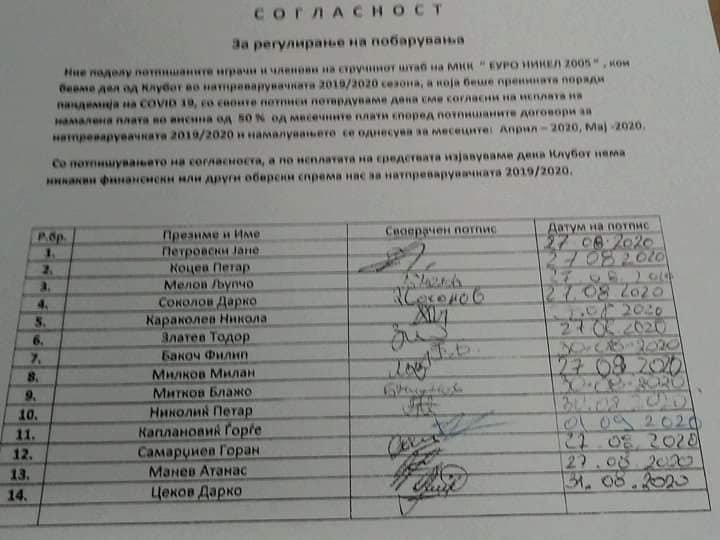 СОГЛАСНОСТ
За регулирање на побарувања
Ние подолу потпишаните играчи и членови на стручниот штаб на МКК “ ЕУРО НИКЕЛ 2005 “ , кои
бевме дел од Клубот во натпреварувачката 2019/2020 сезона, а која беше прекината поради
пандемија на COVID 19, со своите потписи потврдуваме дека сме согласни на исплата на
намалена плата во висина од 50 % од месечните плати според потпишаните договори за
натпреварувачката 2019/2020 и намалувањето се однесува за месеците: Април – 2020, Мај -2020.
Со потпишувањето на согласноста, а по исплатата на средствата изјавуваме дека Клубот нема
никакви финансиски или други обврски спрема нас за натпреварувачката 2019/2020.
Р.бр. Презиме и Име Своерачен потпис Датум на потпис
1. Петровски Јане 27 08 2020
2. Коцев Петар 27 08 2020
3. Мелов Љупчо 27 08 2020
4. Соколов Дарко Соколов 27 08 2020
5. Караколев Никола
6. Златев Тодор 27 08 2020
7. Бакоч Филип 30.08.2020
8. Милков Милан 27 08 2020
9. Митков Блажо 30.08.2020
10. Николиќ Петар 30.08.2020
11. Каплановиќ Ѓорѓе 01 09 2020
12. Самарџиев Горан 27. 08. 2020
13. Манев Атанас 27. 08. 2020
14. Цеков Дарко 31. 08. 2020